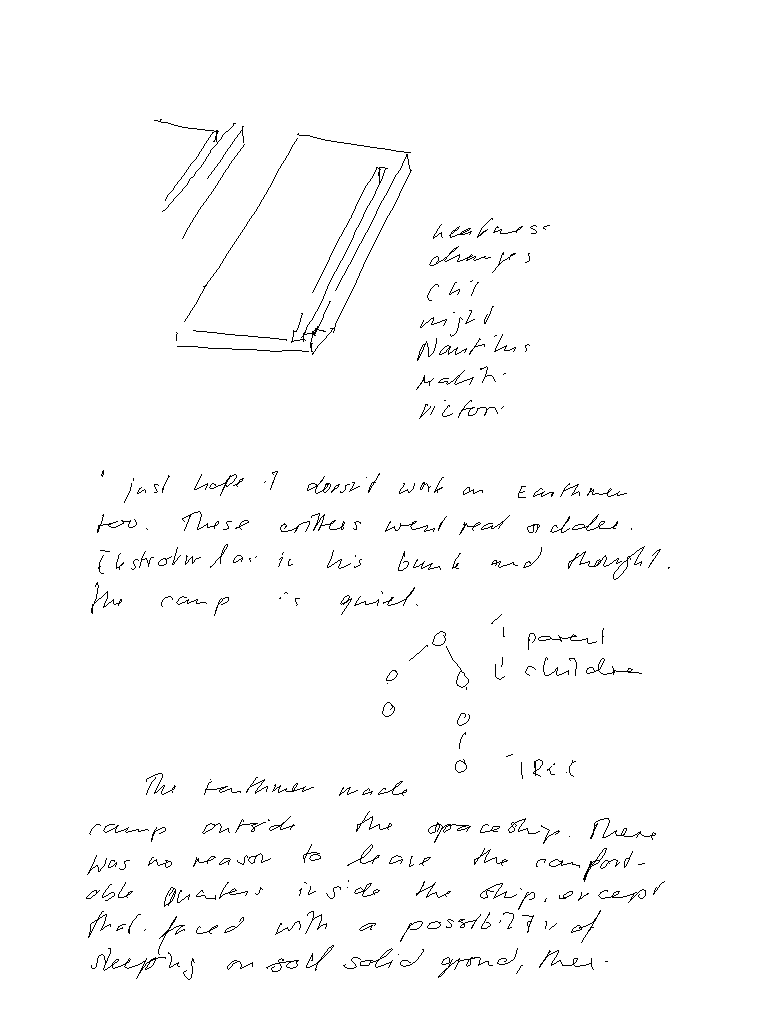 weakness
changes
night
Nautilus
just hope it doesn't work on Earthmen
too. These critters went real sudden.
in his bunk and thought.
The camp is quiet.
parent
children
The Earthmen made
camp outside the spaceship. There
was no reason to leave the comfort-
able quarters inside the ship, except
that, faced with a possibility of
sleeping on soil solid ground, they